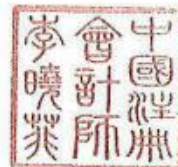 中國注冊
會計師
李曉菲